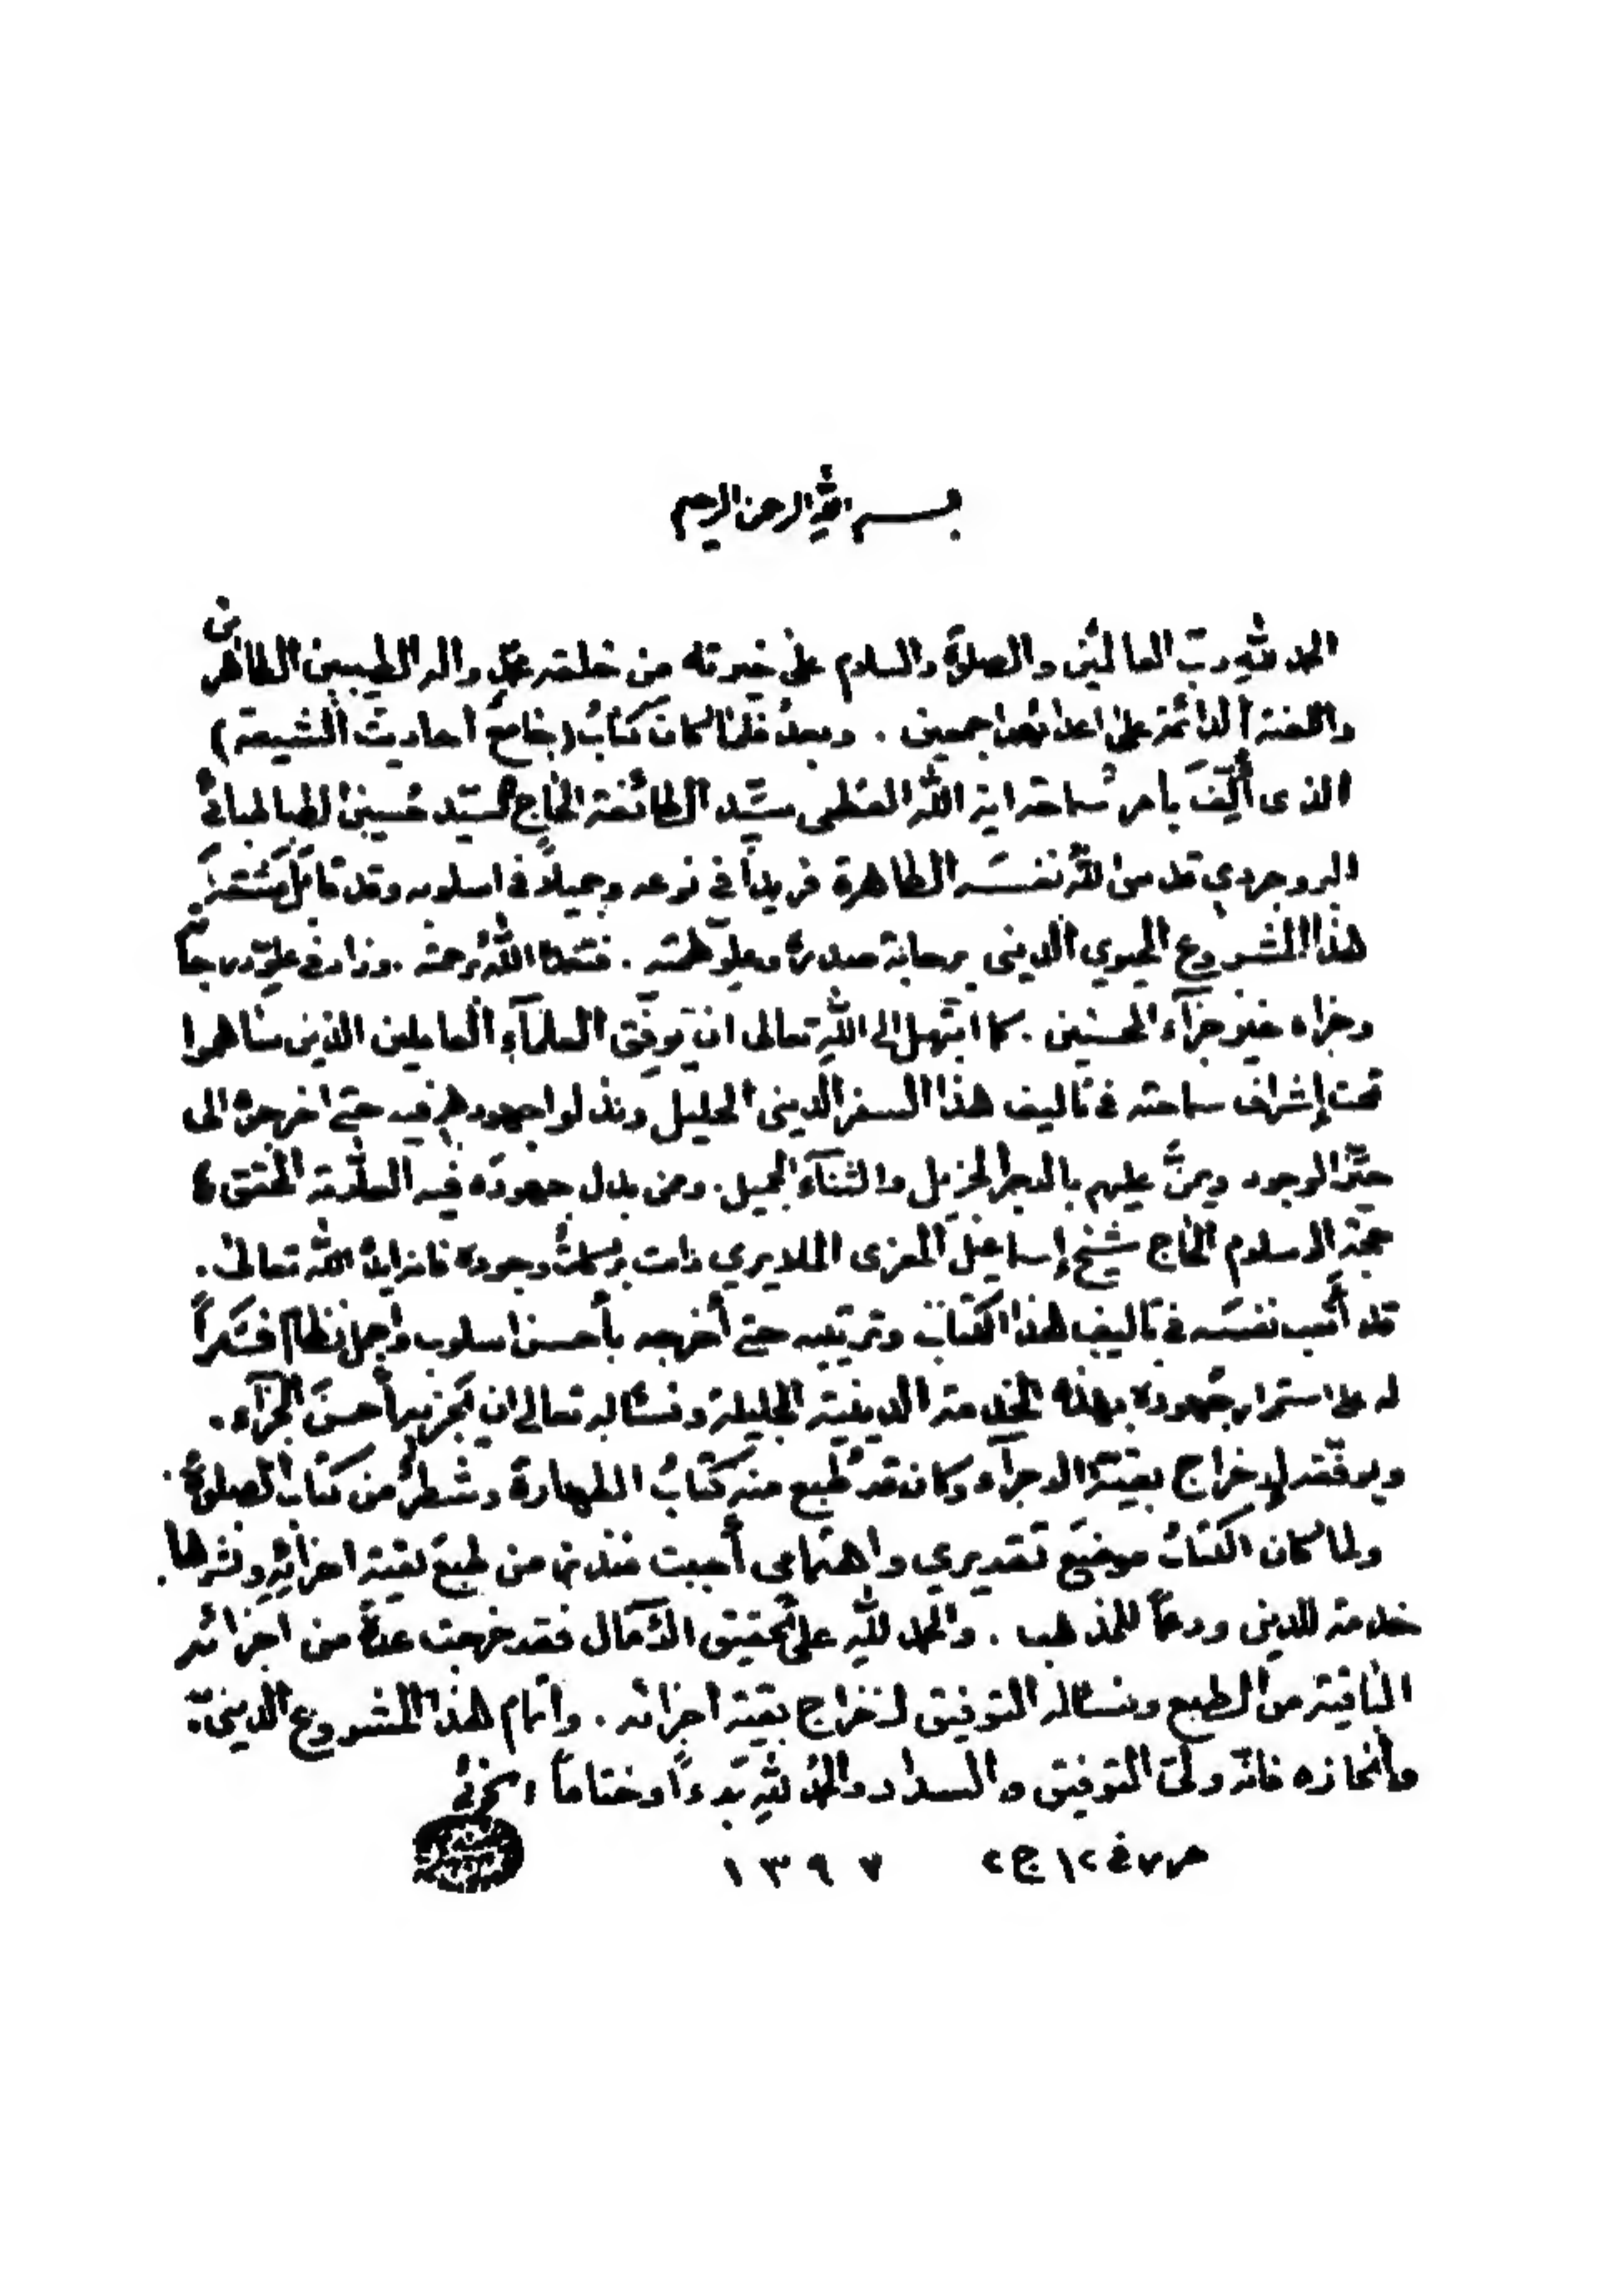 بسم الله الرحمن الرحيم
الحمد لله ربّ العالمين والصلوة والسلام على خيرته من خلقه محمّد واله الطيبين الطاهرين
واللعنة الدائمة على اعدائهم اجمعين . وبعد فلمّا كان كتابُ (جامع احاديث الشيعة)
الذى أُلّفَ بأمر سماحة اية الله العظمى سيّد الطائفة الحاج السيّد حُسين الطباطبائى
البروجردي قدس الله نفسَه الطاهرة فريداً في نوعه وجميلاً في اسلوبه وقد قامَ
هذا المشروع الحيوي الدينى برحابة صدره وعلوّ همّته . فتغمّده الله برحمته . وزاد في علوّ درجاته
وجزاه خير جزآء المحسنين . كما ابتهل إلى الله تعالى ان يوفّق العلمآء العاملين الذين ساهموا
تحت إشراف سماحته في تاليف هذا السفر الدينى الجليل وبذلوا جهودهم فيه حتى اخرجوه الى
حيّز الوجود ويمنّ عليهم بالاجر الجزيل والثنآء الجميل . ومن بذل جهوده فيه العلّامة المحقق
حجة الاسلام الحاج شيخ إسماعيل المعزى الملايري دامت بركات وجوده فانه ايّده الله تعالى .
قد أتعب نفسَه في تاليف هذا الكتاب وترتيبه حتى أخرجه بأحسن اسلوب واجمل نظام فشكراً
له على استمرار جهوده بهذه الخدمة الدينية الجليلة ونسئله تعالى ان يَجزيه أحسنَ الجزآء .
ويوفّقه لإخراج بقيّة الاجزآء وكان قد طُبع منه كتابُ الطهارة وشطرٌ من كتاب الصلوة .
ولما كان الكتابُ موضعَ تقديري واهتمامى أحببت من طبع بقية اجزائِه ونشرها .
خدمة للدين ودعماً للمذهب . والحمد لله على تحقيق الآمال فقد خرجت عدةٌ من اجزائه
الباقية من الطبع ونسئله التوفيق لإخراج بقية اجزائه . واتمام هذا المشروع الدينى
وأنجازه فانّه ولىّ التوفيق والسداد والحمدُ لله بَدءاً وختاماً ؛ الخوئى
في ١٢ ج٢ ١٣٩٧